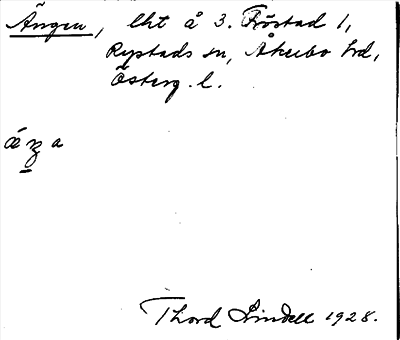 Ängen, lht å 3. Röstad 1,
Rystads sn, Åkerbo hd,
Österg. l.
Thord Lindell 1928.